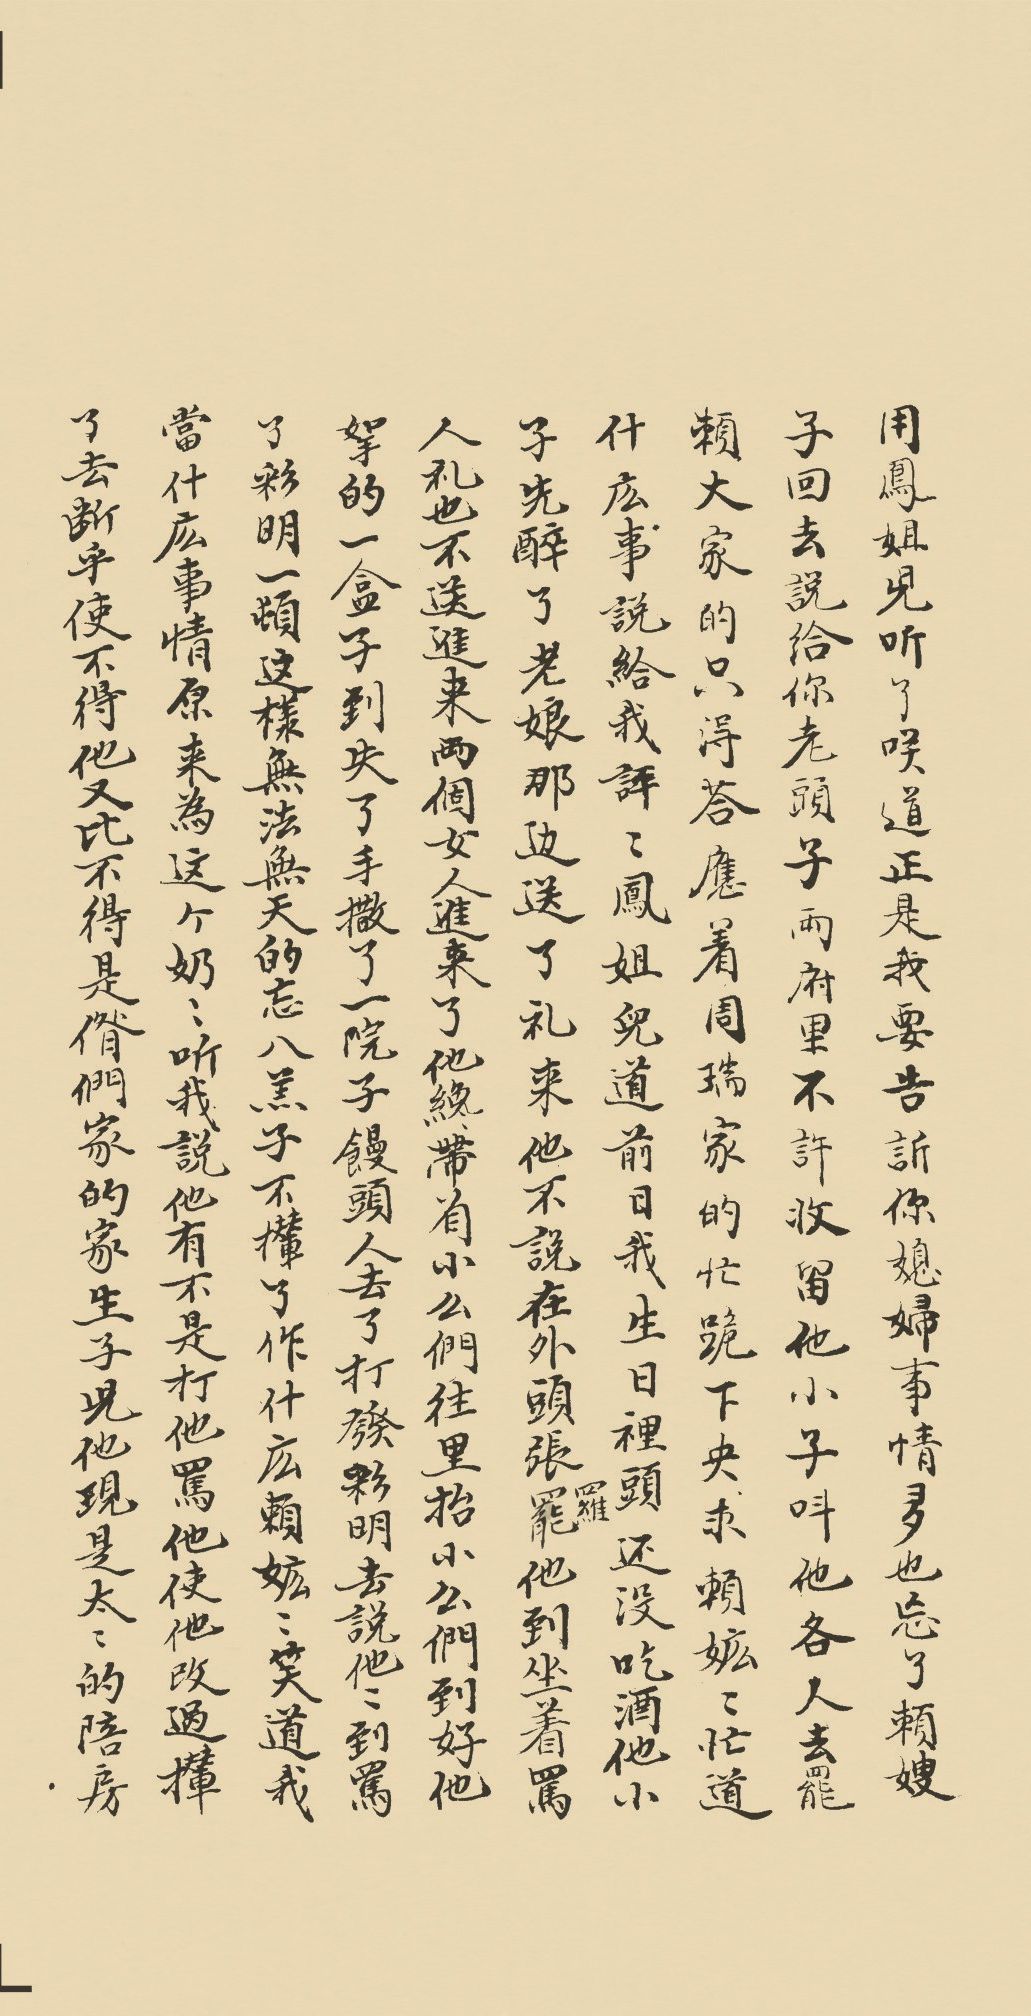 用鳳姐兒听了咲道正是我要告訴你媳婦事情多也忘了賴嫂
子回去說給你老頭子兩府里不許收留他小子呌他各人去罷
賴大家的只得荅應着周瑞家的忙跪下央求賴嬤〻忙道
什広事說給我評〻鳳姐兒道前日我生日裡頭还没吃酒他小
子先醉了老娘那边送了礼来他不說在外頭張羅罷他到坐着罵
人礼也不送進来两個女人進来了他纔帶着小么們往里抬小么們到好他
拏的一盒子到失了手撒了一院子饅頭人去了打發彩明去說他〻到罵
了彩明一頓这様無法無天的忘八羔子不攆了作什広賴嬤〻笑道我
當什広事情原来為这个奶〻听我說他有不是打他罵他使他改過攆
了去断乎使不得他又比不得是偺們家的家生子児他現是太〻的陪房